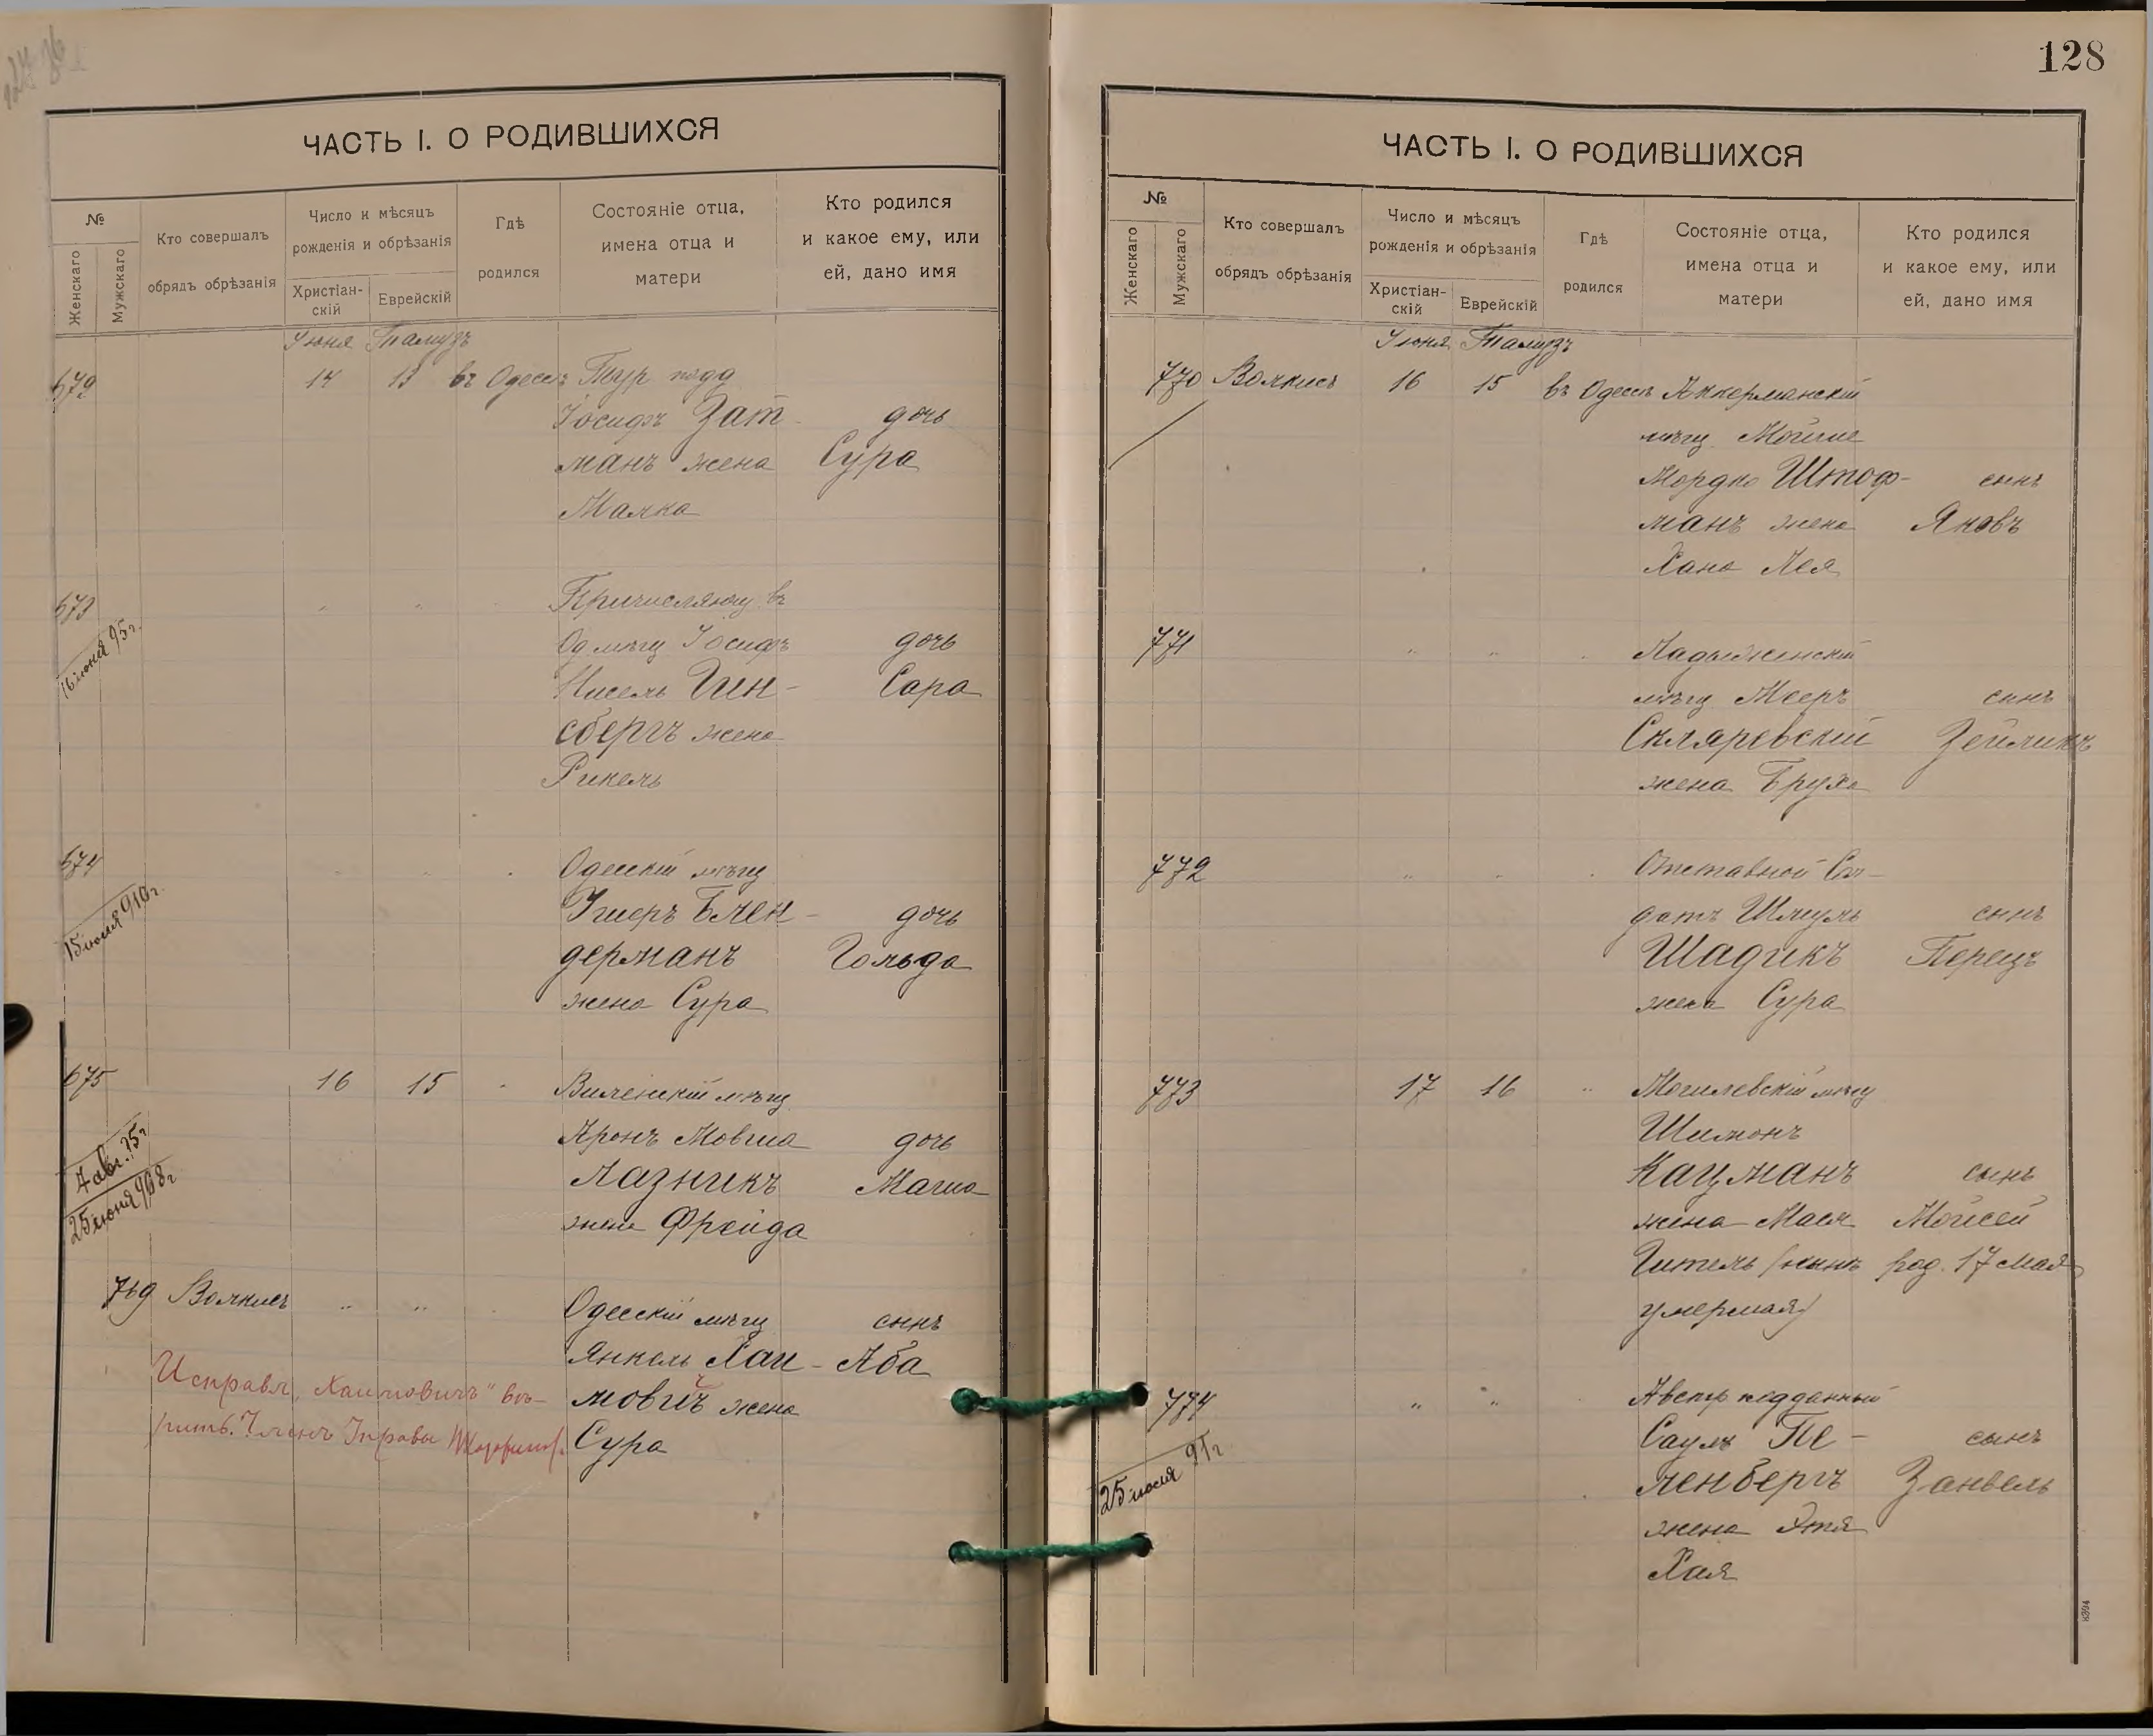 128
ЧАСТЬ I. О РОДИВШИХСЯ
№
Женскаго
Мужскаго
Кто совершалъ
обрядъ обрѣзанія
Число и мѣсяцъ
рожденія и обрѣзанія
Христіан-
скій
Еврейскій
Гдѣ
родился
Состояніе отца,
имена отца и
матери
Кто родился
и какое ему, или
ей, дано имя
Іюня Тамузъ
672 14 13 въ Одессѣ Тур подд
Іосифъ Зат- дочь
манъ жена Сура
Малка
673 " " Причисляющ въ
16 іюня 95 г.
Од мѣщ Іосифъ дочь
Нисель Гин- Сара
сбергъ жена
Рикель
674 " " Одесскій мѣщ
15 іюля 910 г.
Ушеръ Блен- дочь
дерманъ Гольда
жена Сура
675 16 15 Виленскій мѣщ
7 авг. 95 г
25 іюня 908 г
Аронъ Мовша дочь
Лазникъ Маша
жена Фрейда
769 Волкисъ " " Одесскій мѣщ сынъ
Янкель Хаи- Аба
мовичъ жена
Сура
Исправл. „Хаимовичъ" вѣ-
рить. Членъ Управы
ЧАСТЬ I. О РОДИВШИХСЯ
№
Женскаго
Мужскаго
Кто совершалъ
обрядъ обрѣзанія
Число и мѣсяцъ
рожденія и обрѣзанія
Христіан-
скій
Еврейскій
Гдѣ
родился
Состояніе отца,
имена отца и
матери
Кто родился
и какое ему, или
ей, дано имя
Іюня Тамузъ
770 Волкисъ 16 15 въ Одессѣ Аккерманскій
мѣщ Мойше
Мордко Штоф- сынъ
манъ жена Яковъ
Хана Лея
771 " " Ладыженскій
мѣщ Мееръ сынъ
Скляревскій Зейликъ
жена Бруха
772 " " Отставной Сол-
датъ Шмуль сынъ
Шадикъ Перецъ
жена Сура
773 17 16 " Могилевскій мѣщ
Шимонъ
Кацманъ сынъ
жена Мася Мойсей
Гитель (нынѣ род. 17 мая
умершая)
774 " " Австр подданный
25 іюля 95 г
Сауль Пе- сынъ
ленбергъ Занвель
жена Этя
Хая